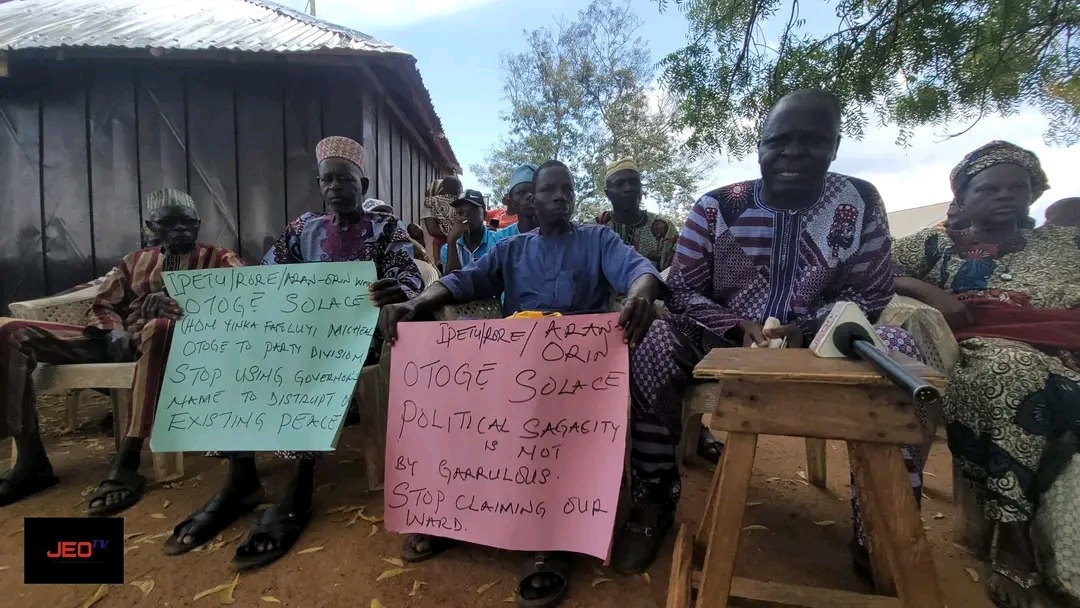 IPETU/RORE/ARAN-ORIN WARD
OTOGẸ SOLACE
(HON YINKA FAFLUYI MICHEAL
OTOGE TO PARTY DIVISION
STOP USING GOVERNOR'S
NAME TO DISTRUPT OUR
EXISTING PEACE
IPETU/RORE/ARAN
ORIN
OTOGẸ SOLACE
POLITICAL SAGACITY
IS NOT
BY GARRULOUS.
STOP CLAIMING OUR
WARD.
JEOTV